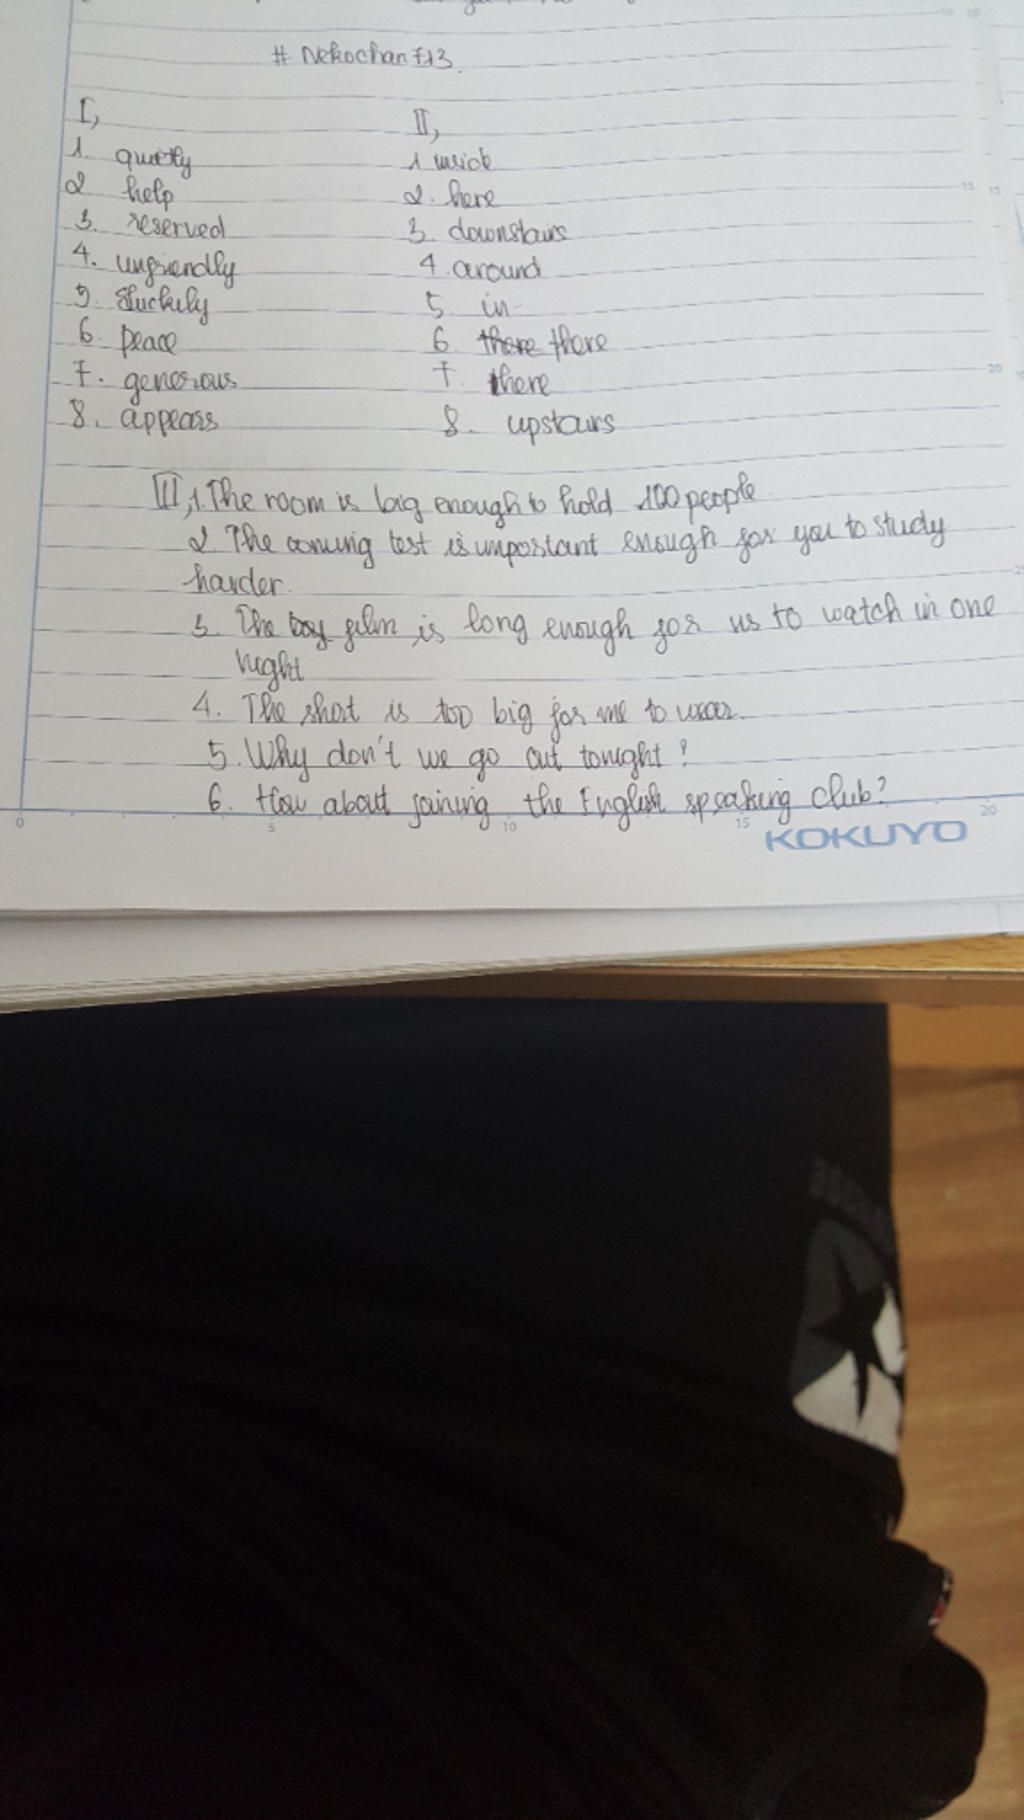 # Nekochan713.
I,
1. quietly
2 help
3. reserved
4. unfriendly
5.
6. peace
7. generous
8. appears
II,
1 inside
2. here
3. downstairs
4. around
5. in
6 there there
7. there
8. upstairs
III, 1. The room is big enough to hold 100 people
2. The coming test is important enough for you to study
harder.
3. The boy film is long enough for us to watch in one
night
4. The shirt is too big for me to wear.
5. Why don't we go out tonight?
6. How about joining the English speaking club?
0 5 10 15 20
KOKUYO